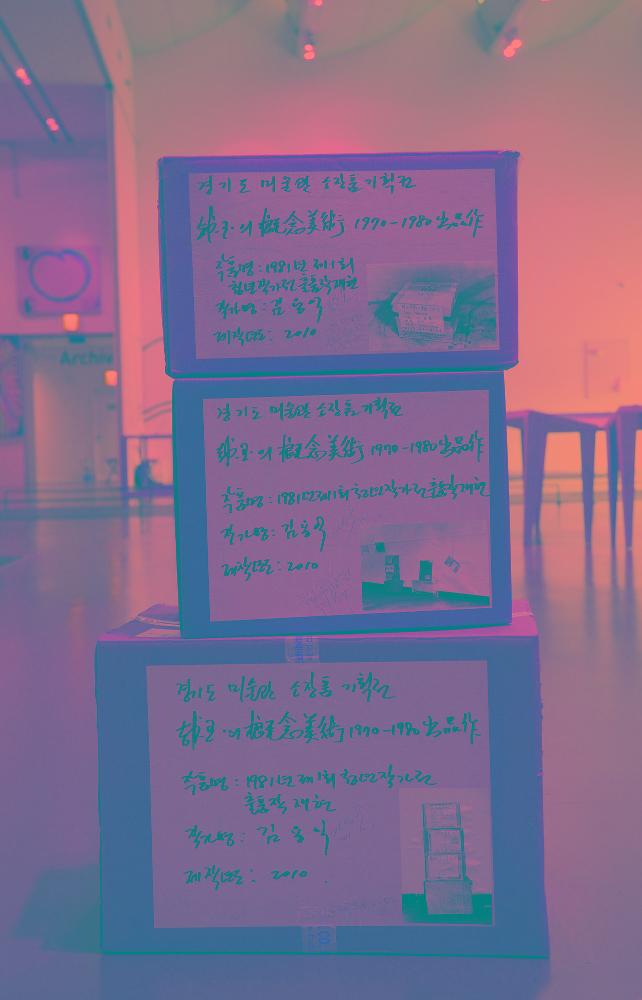 경기도 미술관 소장품 기획전
韓國의 概念美術 1970-1980 出品作
작품명 : 1981년 제1회
청년작가전 출품작 재현
작가명 : 김용익
제작년도 : 2010
경기도 미술관 소장품 기획전
韓國의 概念美術 1970-1980 出品作
작품명 : 1981년 제1회 청년작가전 출품작 재현
작가명 : 김용익
제작년도 : 2010
경기도 미술관 소장품 기획전
韓國의 概念美術 1970-1980 出品作
작품명 : 1981년 제1회 청년작가전
출품작 재현
작가명 : 김용익
제작년도 : 2010
Archive